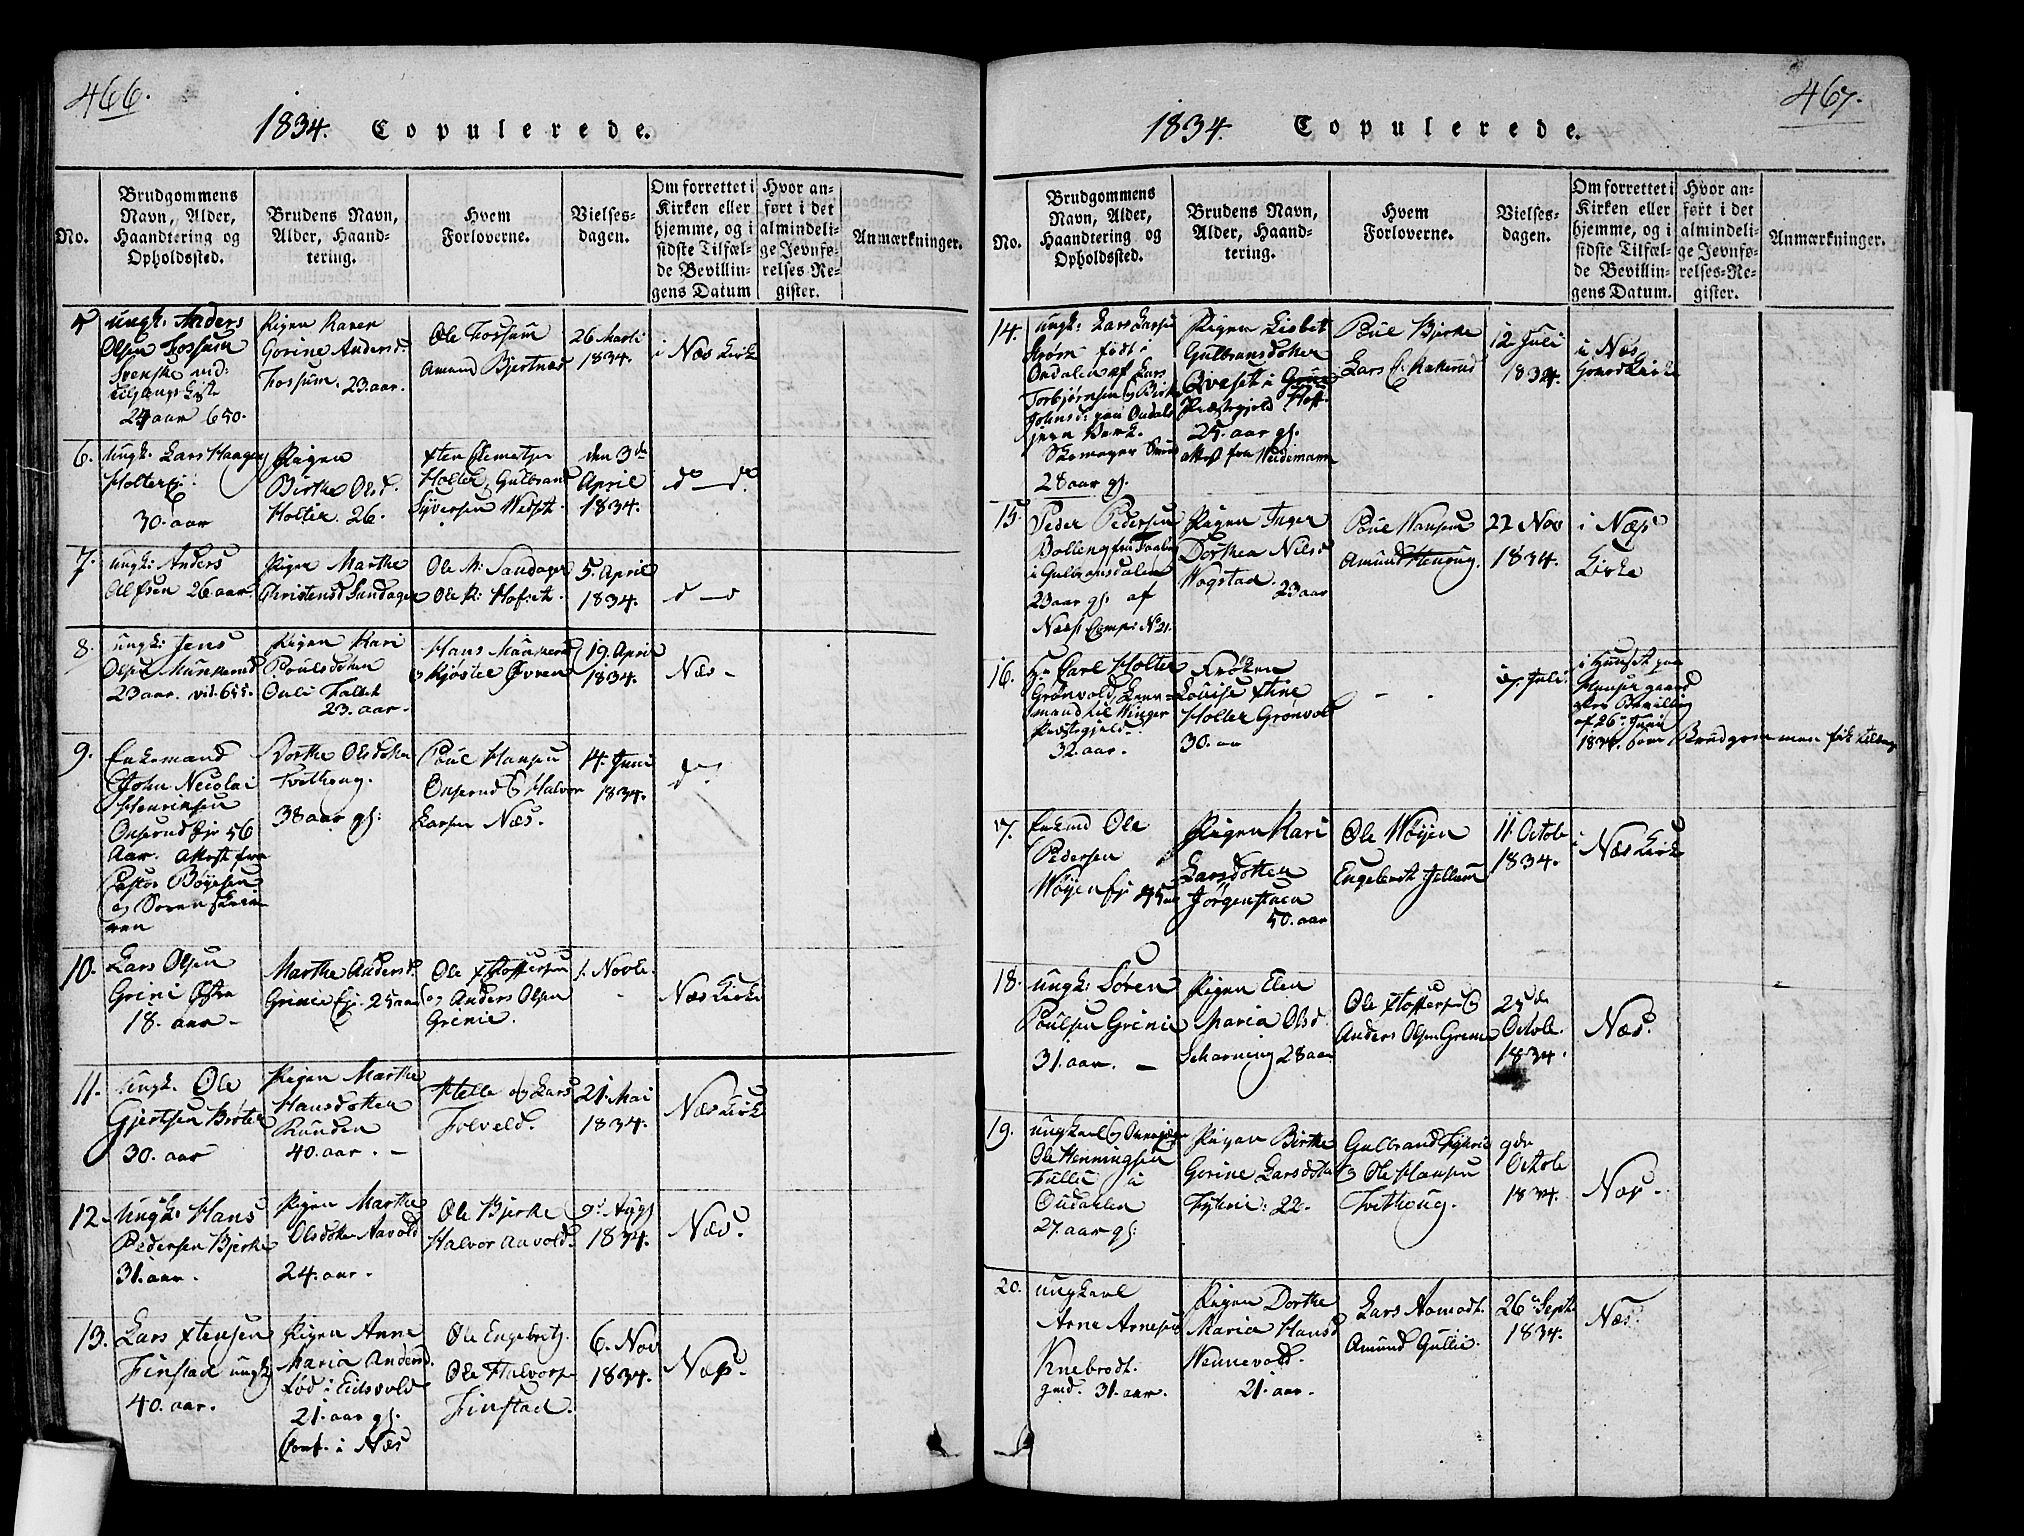 466.
1834. Copulerede.
No.
Brudgommens
Navn, Alder,
Haandtering og
Opholdssted.
Brudens Navn,
Alder, Haand-
tering.
Hvem
Forloverne.
Vielses-
dagen.
Om forrettet i
Kirken eller
hjemme, og i
sidste Tilfæl-
de Bevillin-
gens Datum
Hvor an-
ført i det
almindeli-
ge Jevnfø-
relses-Re-
gister.
Anmærkninger.
ungk: Anders
Olsen Fossum
Svenske
24 aar 650.
Pigen Karen
Gorine Andersd.
Fossum. 23. aar.
Ole Fossum
Amund Bjertnæs
26 Marti
1834.
i Næs Kirke
6.
Ungk. Lars Haagens
Holter Ej.
30. aar
Pigen
Birthe Olsd.
Holter. 26.
Holter, Gulbrand
Syversen
den 3de
April
1834.
do — do
7.
ungk: Anders
Olfsen 26 aar
Pigen Marthe
Christensd. Sandager
Ole M: Sandager
Ole P: Hofset.
5. April
1834.
d — o
8.
ungk: Jens
Olsen Munkerud
23 aar. vid. 655.
Pigen Kari
Poulsdotter
Foldet
23. aar.
Hans Munkerud
Kjøstel Øvren
19. April
1834.
Næs -
9.
Enkemand
John Nicolai
Henriksen
Onsrud Ejr 56
Aar. Attest fra
Pastor Bøyesen
og Sorenskriv
eren
Dorthe Olsdotter
Tvithoug.
38 aar gl:
Poul Hansen
Onsrud & Halvor
Larsen Næs.
14. Juni
1834.
do
10.
Lars Olsen
Grini Østre
18. aar -
Marthe Andersd.
Grinie Ej. 25 aar
Ole Xstoffersen
og Anders Olsen
Grinie.
1. Novbr.
Næs Kirke
11.
Ungk. Ole
Gjertsen Bråter
30. aar
Pigen Marthe
Hansdotter
Runden
40. aar. -
Helle og Lars
Folveld.
21. Mai
1834.
Næs Kirke
12.
Ungk: Hans
Pedersen Bjerke
31. aar.
Pigen Marthe
Olsdotter Aavold
24. aar.
Ole Bjerke
Halvor Aavold.
9de Augs
1834.
Næs.
13.
Lars Xtensen
Finstad ungk
40. aar.
Pigen Anne
Maria Andersd.
fød i Eidsvold
21. aar gl.
Conf. i Næs
Ole Engebretz.
Ole Halvors
Finstad.
6. Nov
1834.
Næs.
467.
1834. Copulerede.
No.
Brudgommens
Navn, Alder,
Haandtering og
Opholdssted.
Brudens Navn,
Alder, Haand-
tering.
Hvem
Forloverne.
Vielses-
dagen.
Om forrettet i
Kirken eller
hjemme, og i
sidste Tilfæl-
de Bevillin-
gens Datum.
Hvor an-
ført i det
almindeli-
ge Jevnfø-
relses-Re-
gister.
Anmærkninger.
14.
ungk: Lars Larsen
Strøm født i
Oudalen af Lars
Torbjørnsen & Birthe
Johnsd: paa Oudals
jern Værk.
Skomager Svend
28 aar gl.
Pigen Lisbet
Gulbransdotter
Qveset i Grue
Præstegjeld Hoff
25. aar gl.
attest fra Weidemann
Poul Bjerke
Lars E: Rakerud
12 Juli
1834.
i Næs
Kirke
15.
Peder Pedersen
Bolleng fra Faaberg
i Gulbransdalen
23 aar gl. af
Næss Comp: No 21.
Pigen Inger
Dorthea Nilsd
Wogstad.
23 aar
Poul Hansen
Amund Henrug.
22 Nov
1834.
i Næs
Kirke
16.
Hr Carl Holter
Grønvold, Lens-
mand til Winger
Præstegjeld.
32. aar.
Frøken
Louise Xtine
Holter Grønvold
30. aar
- -
17. Juli.
i Huuset paa
Huusegaard
efter Bevilling
af 26de Juni
1834. som Brudgommen fik tilbage
17.
Enkmd Ole
Pedersen
Wøyen Ej. 45 aar
Pigen Kari
Larsdotter
Jørgenstuen
50. aar
Ole Wøyen
Engebret Jellum
11. Octob
1834.
i Næs Kirke
18.
ungk: Søren
Poulsen Grinie
31. aar. -
Pigen Elen
Maria Olsd.
Scharning 28 aar
Ole Xstoffersen &
Anders Olsen Grinie
25de
Octob.
1834.
Næs.
19.
ungkarl &
Ole Henningsen
Fulli i
Oudalen
27. aar gl:
Pigen Birthe
Gorine Larsdotter
Fyhrie: 22.
Gulbrand Fyhrie
& Ole Hansen
Tvithoug.
9de
Octob
1834.
Næs.
20.
ungkarl
Arne Arnesen
Knebrodt.
gmd. 31. aar.
Pigen Dorthe
Maria Hansd
Nennevold.
21. aar.
Lars Aamodt.
Amund Gullie.
26de Sept.
1834.
Næs.